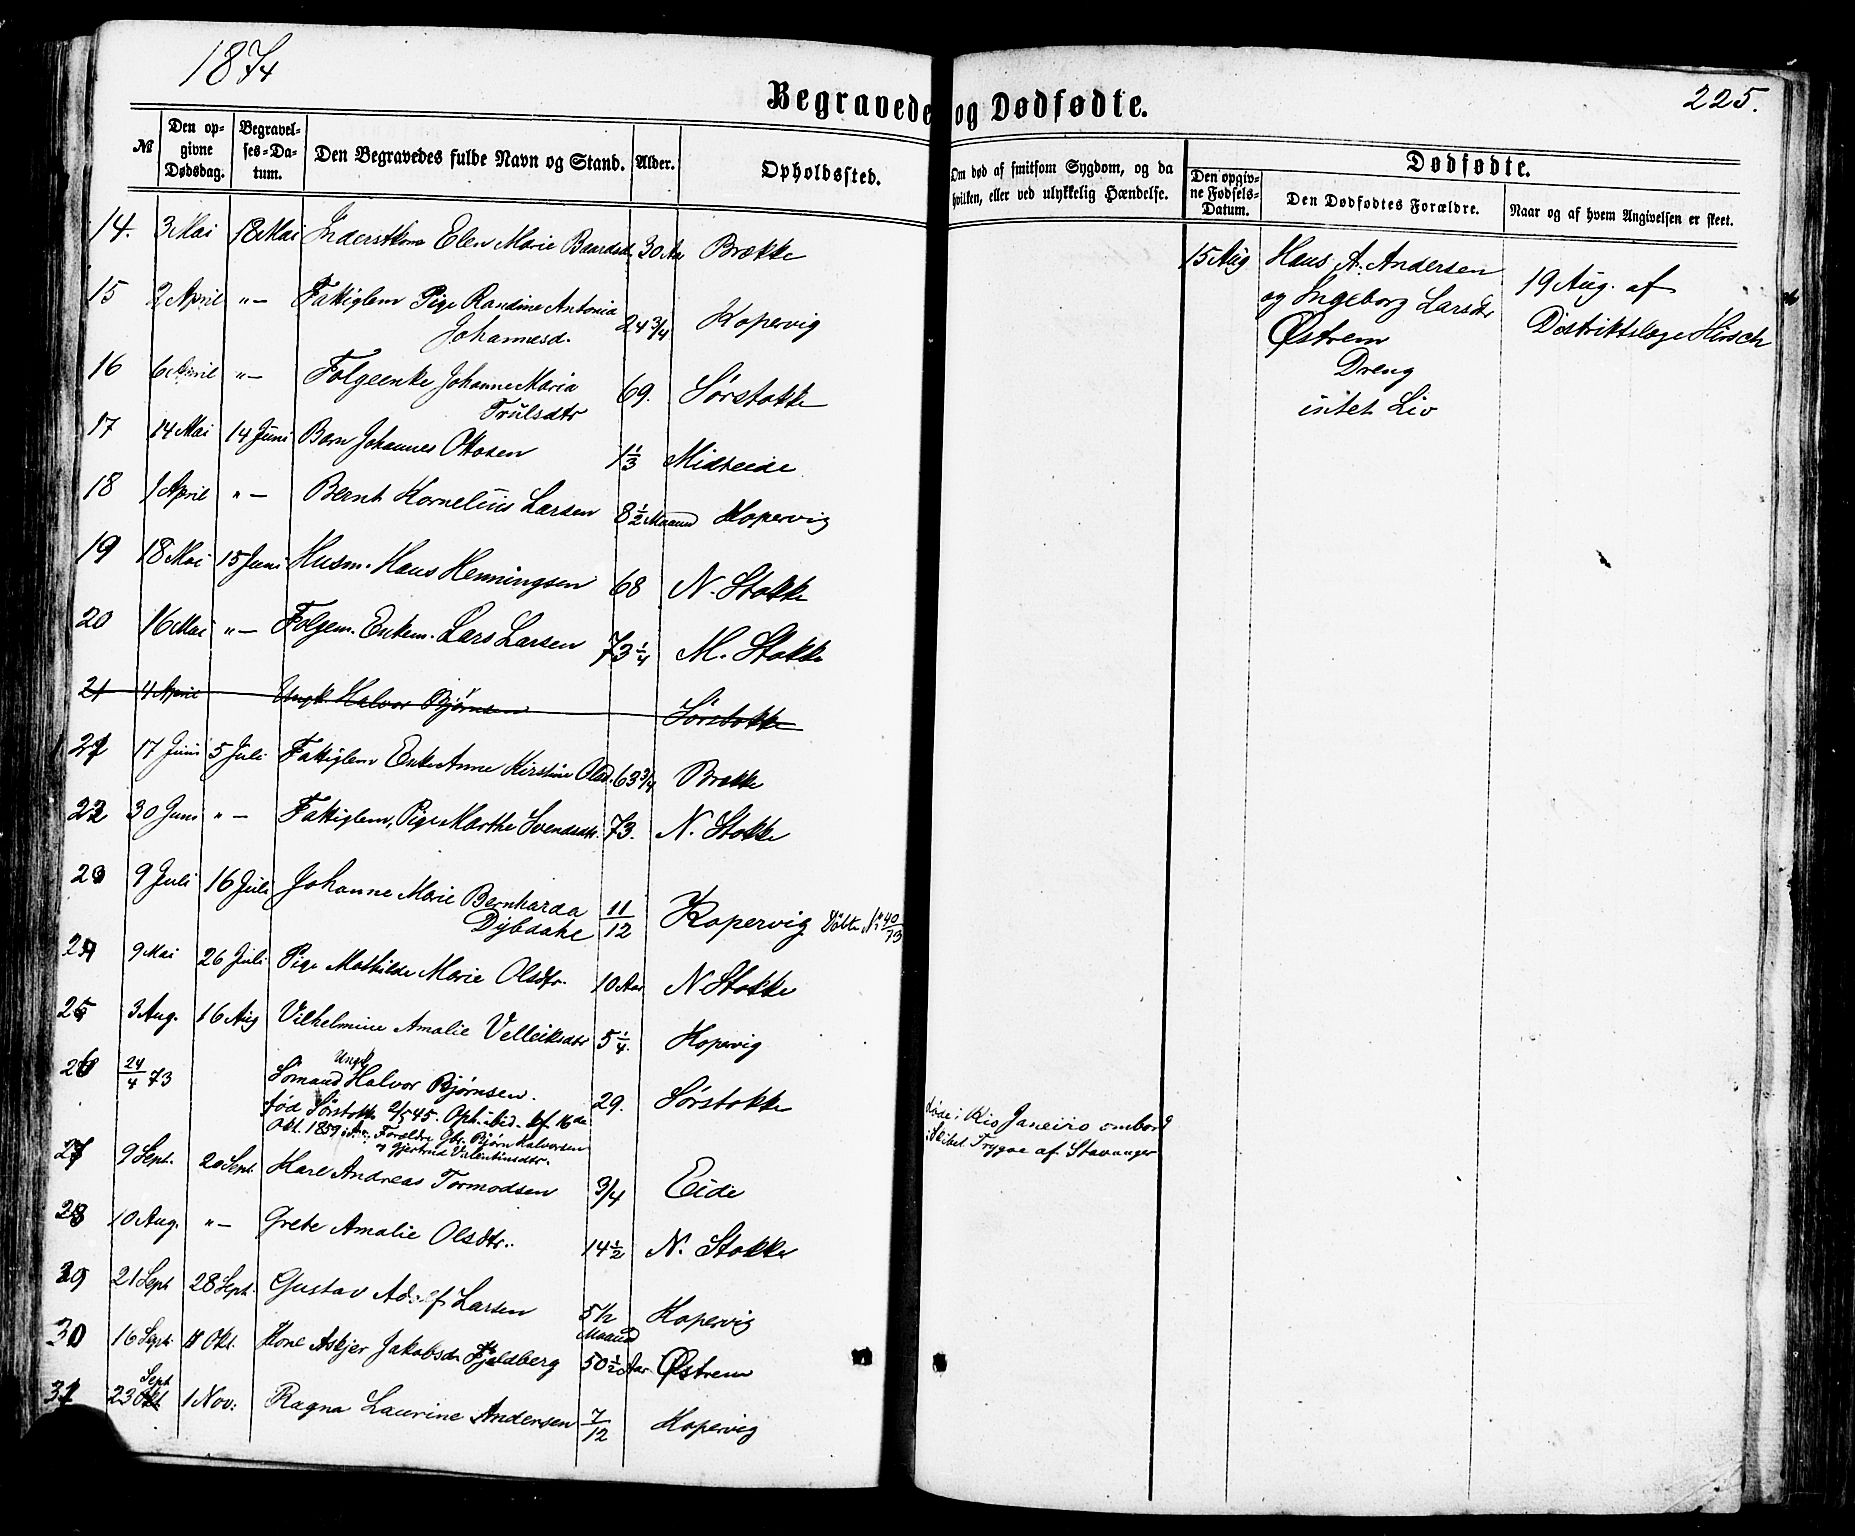 1874
Begravede og Dødfødte.
225.
№
Den opgivne Dødsdag.
Begravelses-Datum.
Den Begravedes fulde Navn og Stand.
Alder.
Opholdssted.
Om død af smitsom Sygdom, og da hvilken, eller ved ulykkelig Hændelse.
Dødfødte.
Den opgivne Fødsels-Datum.
Den Dødfødtes Forældre.
Naar og af hvem Angivelsen er skeet.
14. 3 Mai 18 Mai Inderstkone Elen Marie Baardsd. 30 Aar Brække
15 2 April "— Fattiglem Pige Randine Antonia 24 3/4 Kopervig
Johannesd.
16 6 April "— Folgeenke Johanne Maria 69. Sørstokke
Trulsdtr
17 14 Mai 14 Juni Barn Johannes Ottosen 1 1/3 Midteide
18 1 April "— Bernt Kornelius Larsen 8 1/2 Maaned Kopervig
19 18 Mai 15 Juni Husm. Hans Henningsen 68 N. Stokke
20 16 Mai "— Folgem. Enkem. Lars Larsen 73 1/4 M. Stokke
21 4 April Ungk. Halvor Bjørnsen Sørstokke
21 17 Juni 5 Juli Fattiglem Enke Anne Kirstine Olsd. 63 3/4 Brække
22 30 Juni "— Fattiglem, Pige Marthe Svendsdtr. 73. N. Stokke
23 9 Juli 16 Juli Johanne Marie Bernharda 11/12 Kopervig Døbte No 40/73
Dybdahl
24 9 Mai 26 Juli Pige Mathilde Marie Olsdtr. 10 Aar N Stokke
25 3 Aug. 16 Aug Vilhelmine Amalie Velleiksdtr 5 1/4. Kopervig
26 24/4 73 Ungk Sømand Halvor Bjørnsen. 29. Sørstokke
død i Rio Janeiro ombord
i Skibet Trygve af Stavanger
fød Sørstokke 2/5 45. Oph. ibid. kf 16de
Okt. 1859 Forældre Gbr. Bjørn Halvorsen
og Gjertrud Valentinsdtr.
27 9 Sept. 20 Sept. Karl Andreas Tormodsen 3/4 Eide
28 10 Aug. "— Grete Amalie Olsdtr. 14 1/2 N. Stokke
29 21 Sept 28 Sept. Gustav Adolf Larsen 5 1/2 Maaned Kopervig
30 16 Sept. 11 Okt. Kone Askjer Jakobsd. Fjeldberg 50 1/2 Aar Østrem
31 23 Okt Sept 1 Nov: Ragna Laurine Andersen 7/12 Kopervig
15 Aug Hans A. Andersen
og Ingeborg Larsdtr
Østrem
Dreng
intet Liv
19 Aug. af
Distriktslæge Hirsch